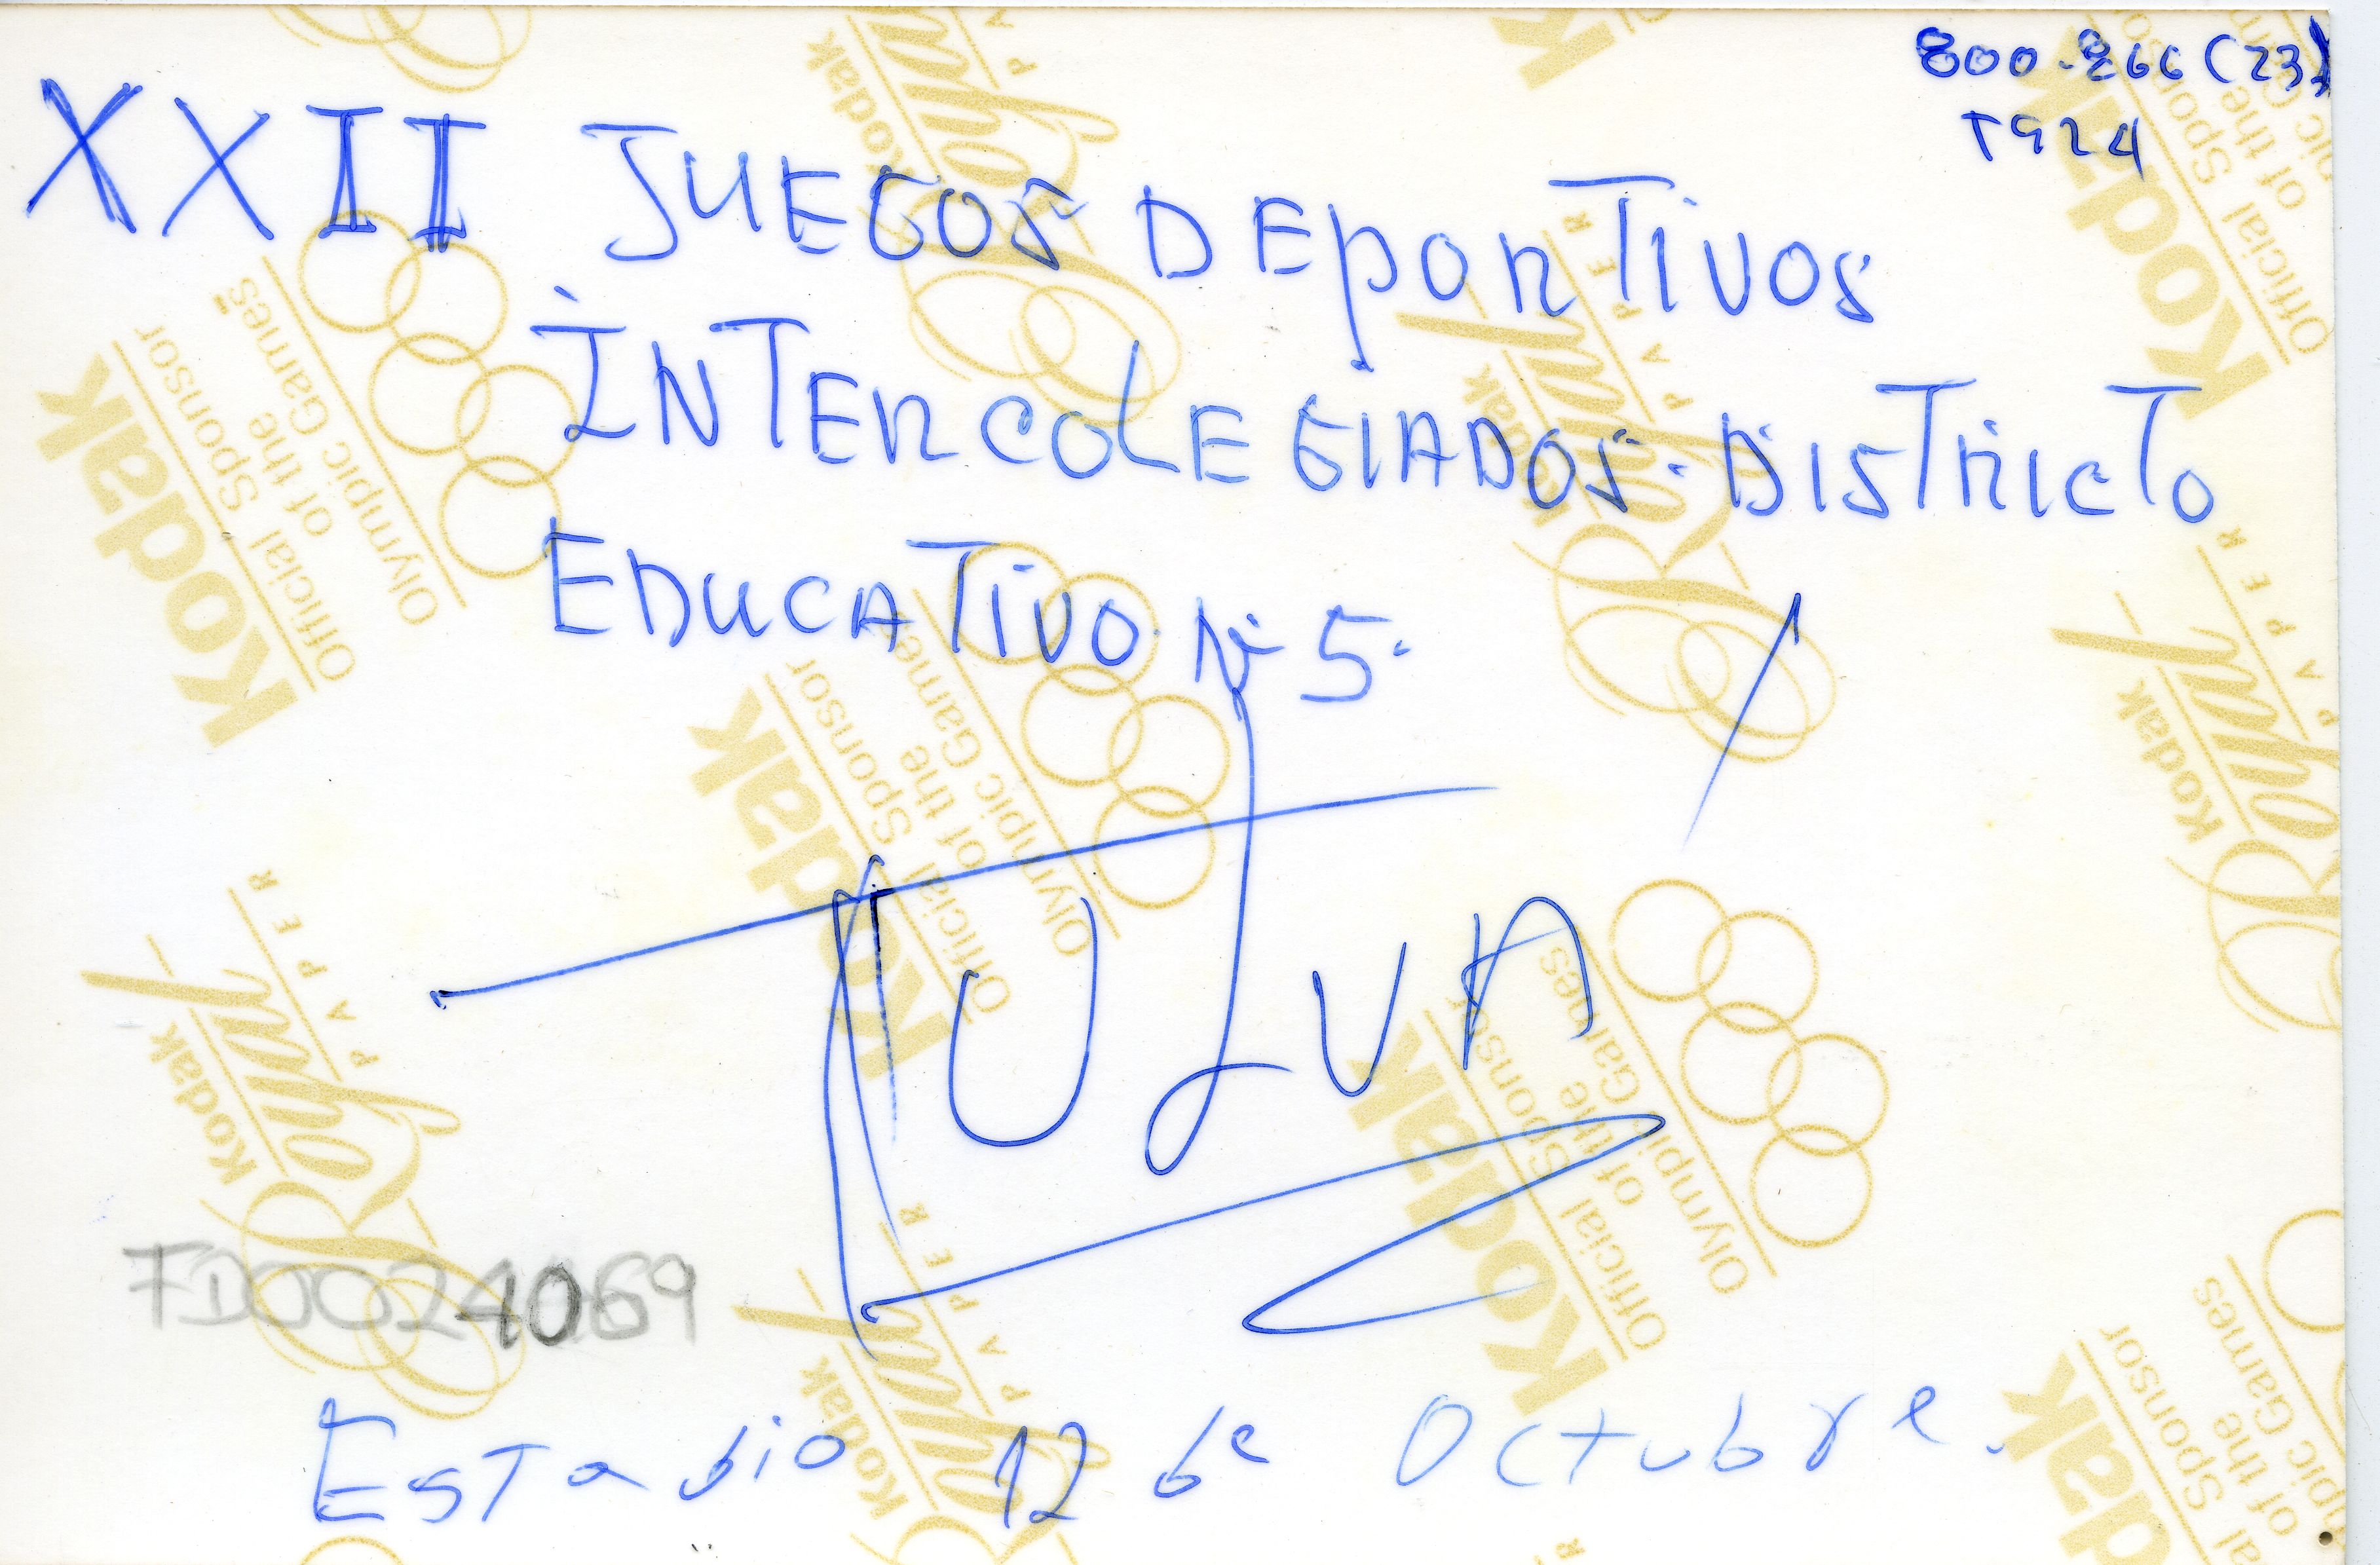 800-866 (23)
T924
XXII JUEGOS DEPORTIVOS
INTERCOLEGIADOS. DISTRICTO
EDUCATIVO. Nº 5.
TOLUR
FD0024069
Estadio 12 de Octubre.
Kodak
Official Sponsor
of the
Olympic Games
Kodak
Royal
PAPER